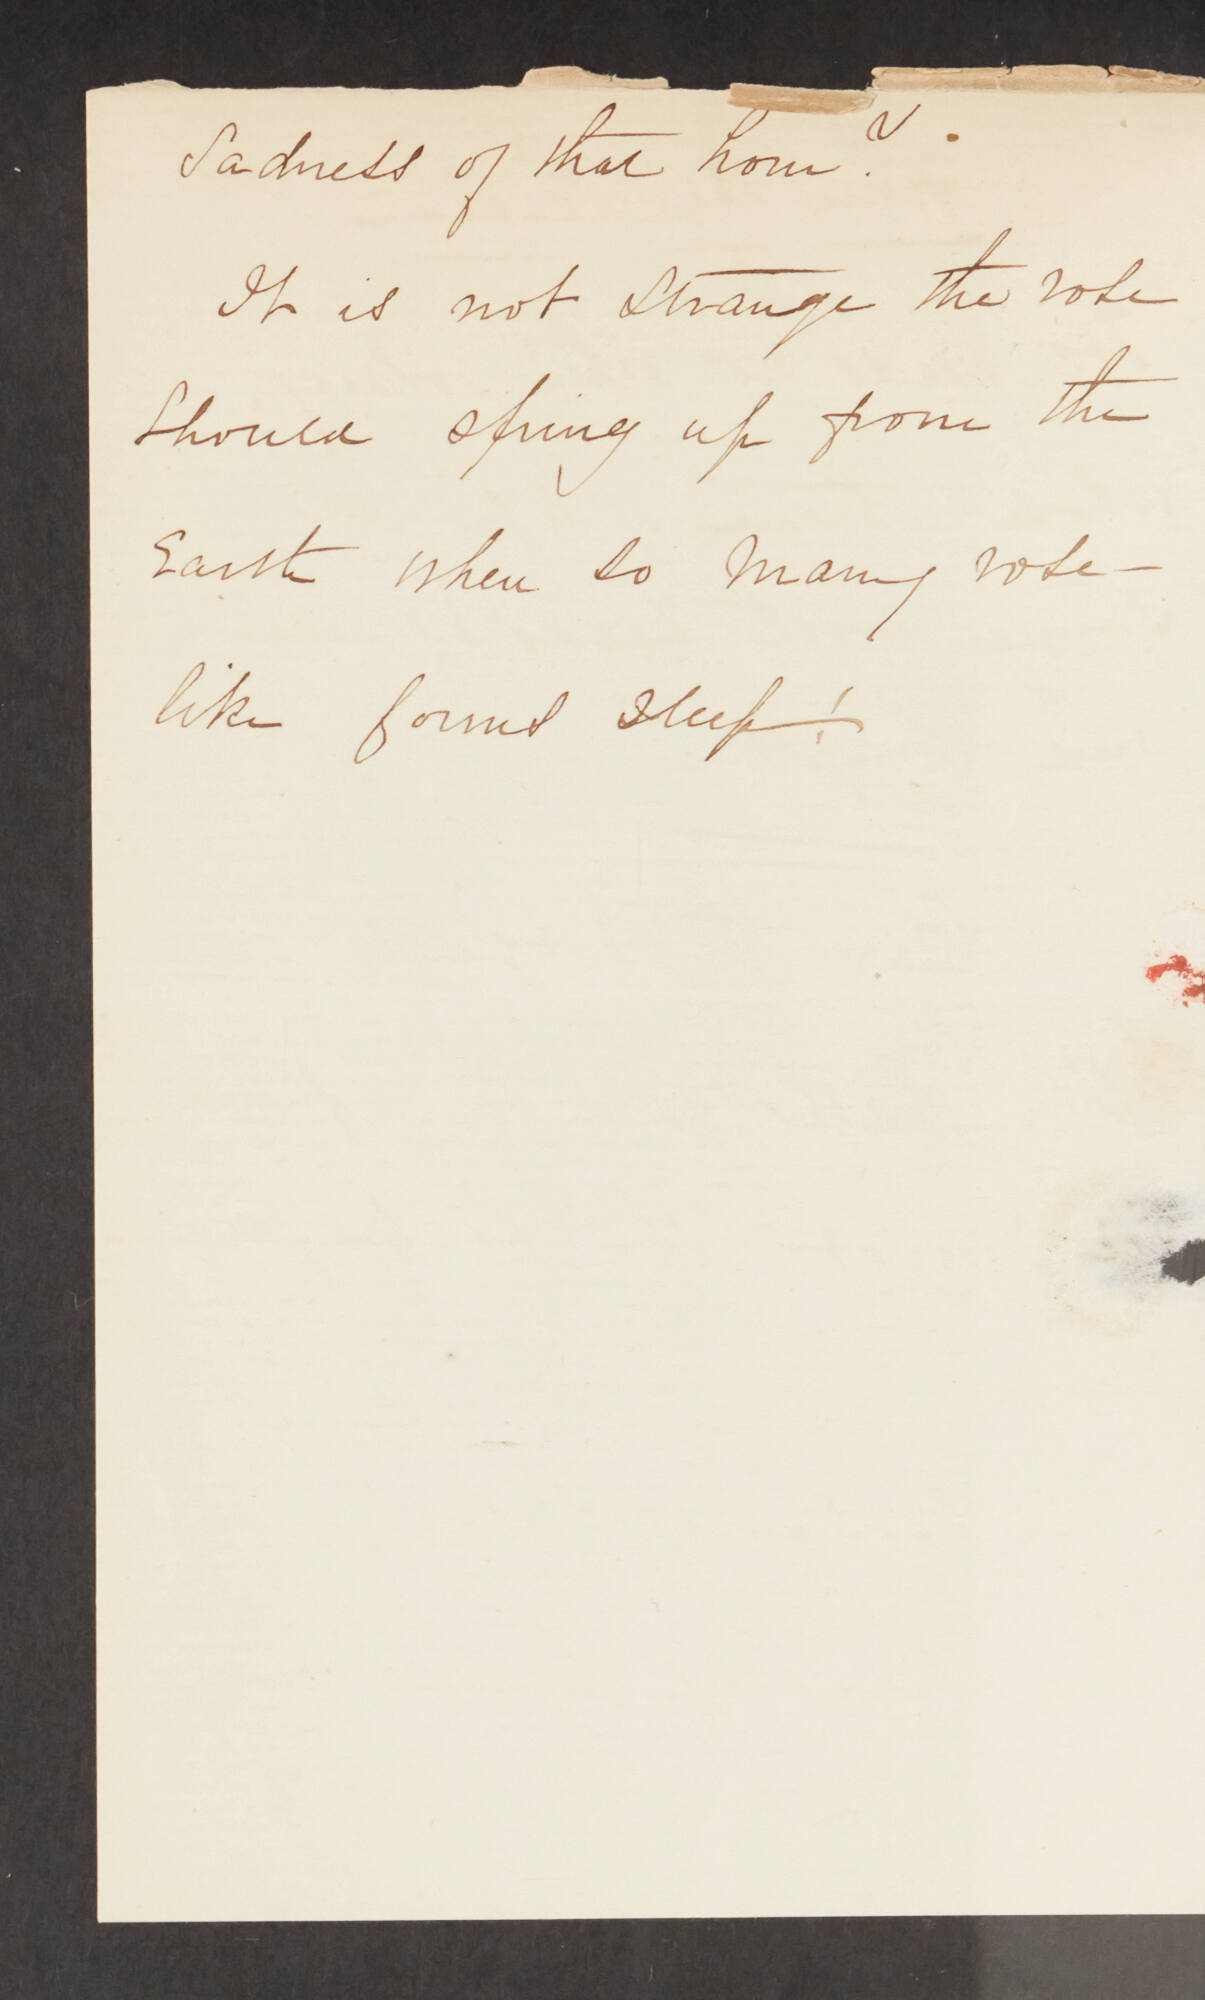 Sadness of that hour?
It is not strange the rose
should spring up from the
Earth when so many rose-
like forms sleep!